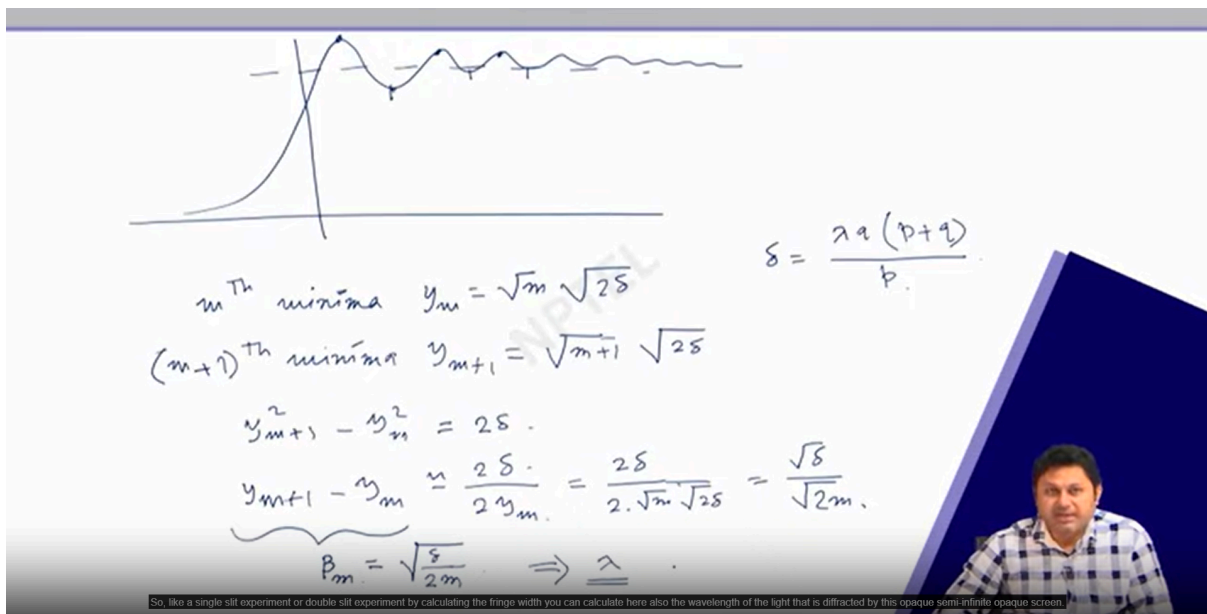 δ = λq (p+q) / p.
mTh minima ym = √m √2δ
(m+1)Th minima ym+1 = √m+1 √2δ
NPTEL
y²m+1 - y²m = 2δ .
ym+1 - ym ≃ 2δ. / 2ym. = 2δ / 2.√m √2δ = √δ / √2m.
βm = √δ/2m ⇒ λ .
So, like a single slit experiment or double slit experiment by calculating the fringe width you can calculate here also the wavelength of the light that is diffracted by this opaque semi-infinite opaque screen.